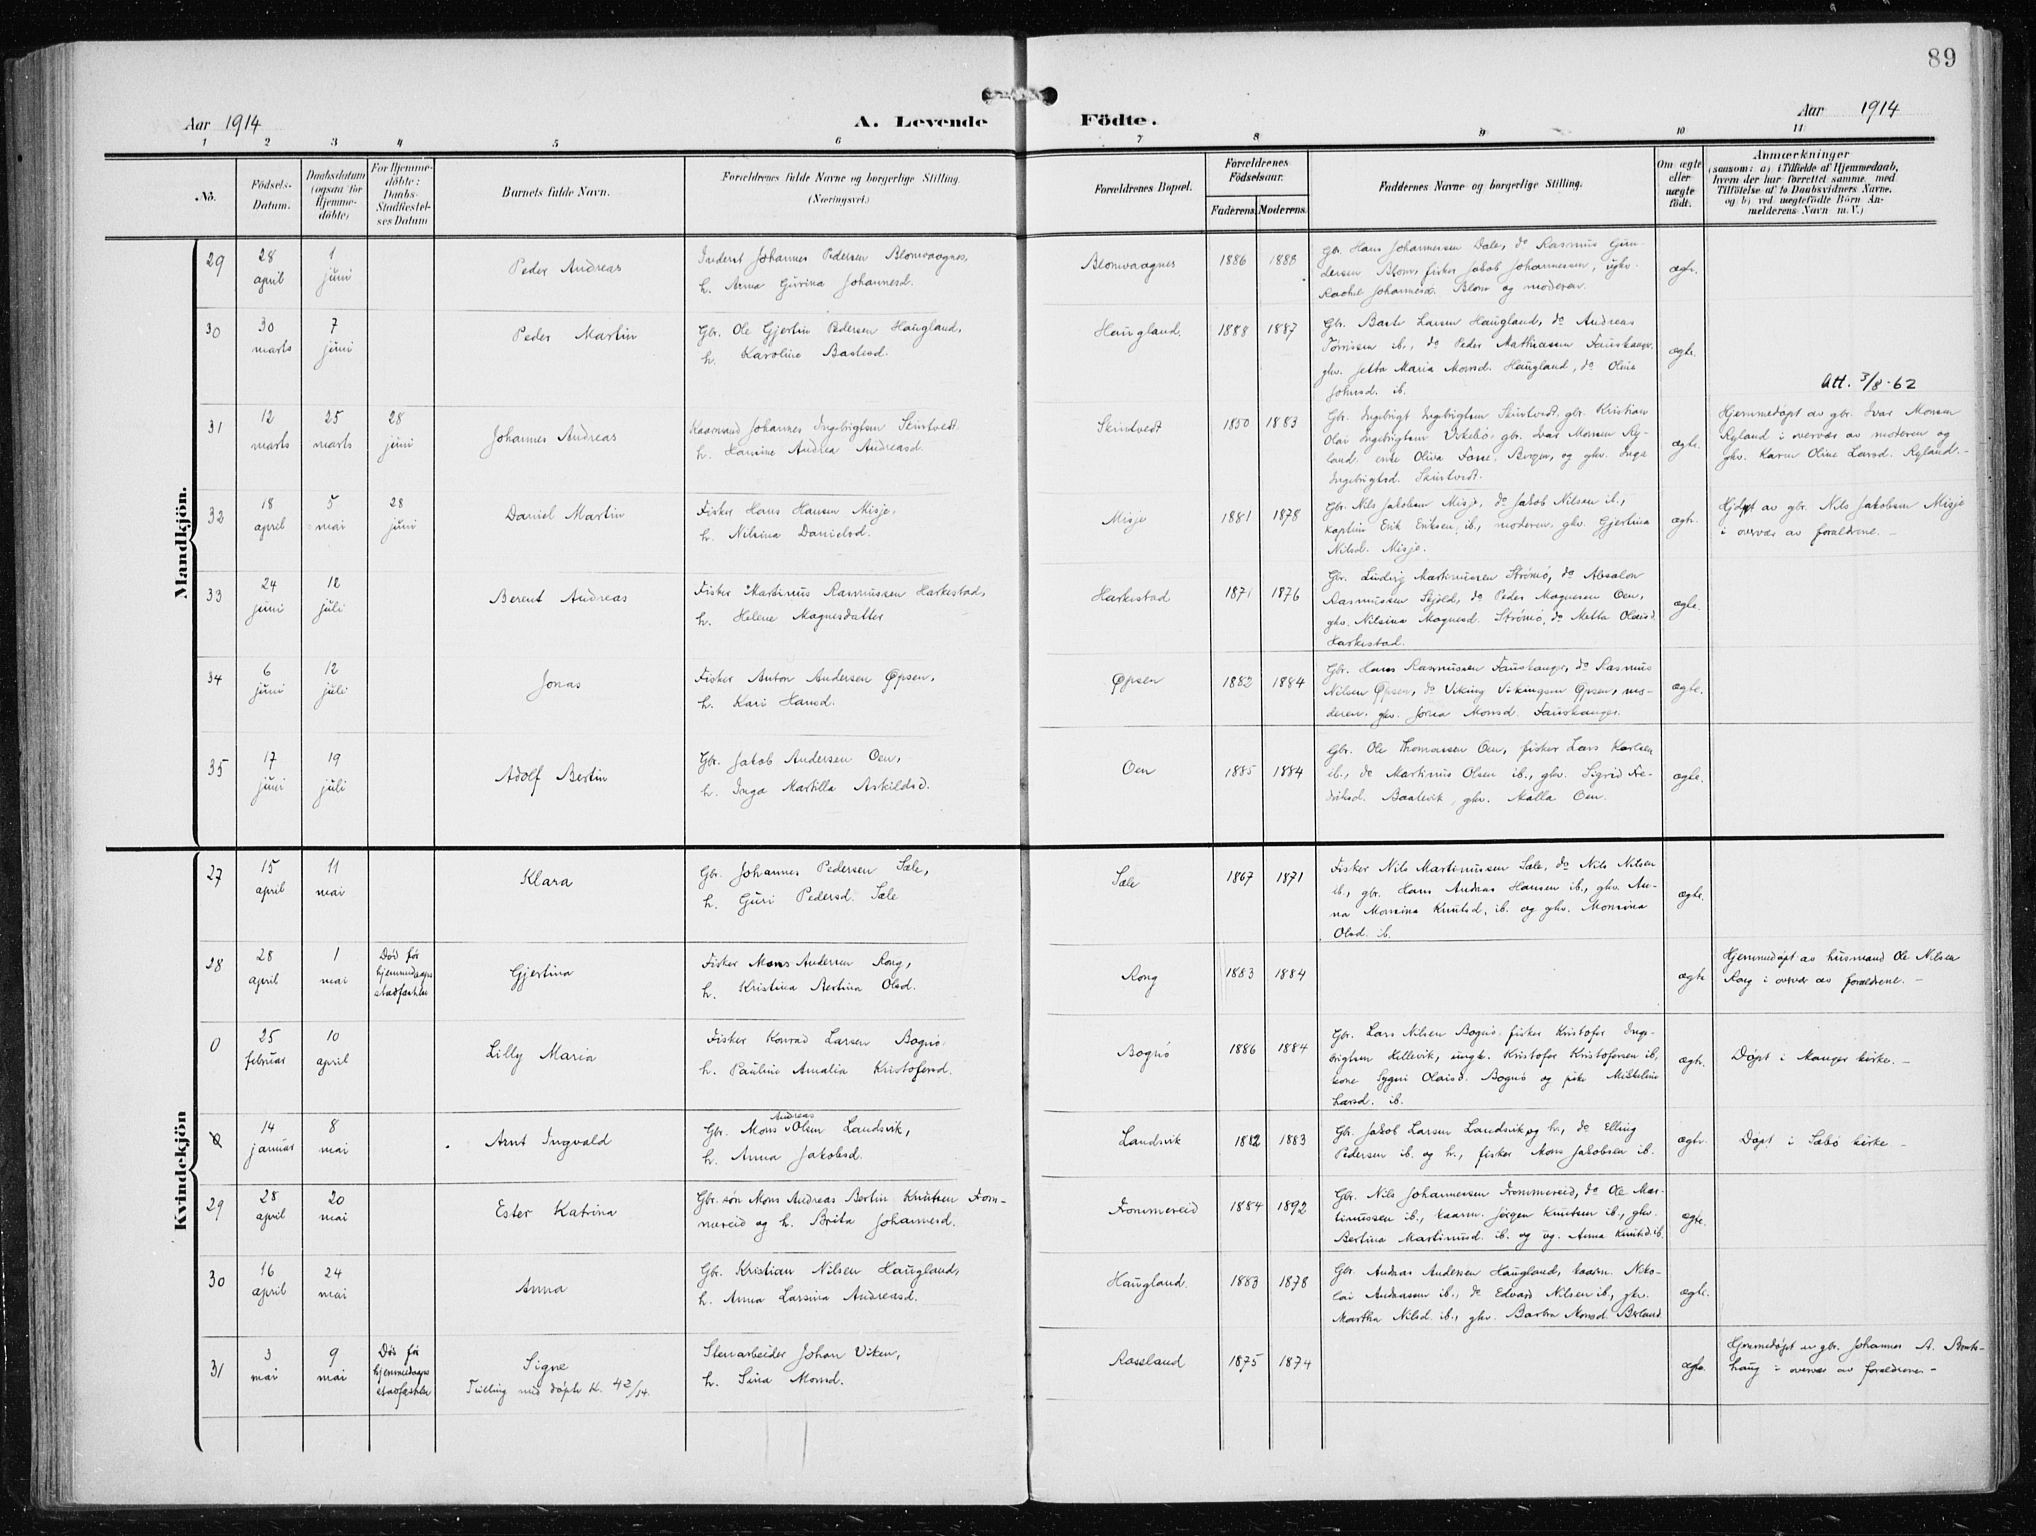 89
Aar 1914
A. Levende Födte.
Aar 1914
1 2 3 4 5 6 7 8 9 10 11
No.
Födsels-Datum.
Daabsdatum (ogsaa for Hjemme-döbte)
For Hjemme-döbte: Daabs-Stadfæstel-ses Datum
Barnets fulde Navn.
Forældrenes fulde Navne og borgerlige Stilling. (Næringsvei.)
Forældrenes Bopæl.
Forældrenes Födselsaar.
Faderens. Moderens.
Faddernes Navne og borgerlige Stilling.
Om ægte eller uægte födt.
Anmærkninger
(saasom: a) i Tilfælde af Hjemmedaab,
hvem der har forrettet samme, med
Tilföielse af to Daabsvidners Navne,
og b) ved uægtefödte Börn An-
melderens Navn m. V.)
Mandkjön.
29 28 april 1 juni Peder Andreas
Inderst Johannes Pedersen Blomvaagnes,
h. Anna Gurina Johannesd.
Blomvaagnes 1886 1888
Gbr. Hans Johannessen Dale, do Rasmus Gun-
dersen Blom, fisker Jakob Johannessen, ugkv.
Rachel Johannesd. Blom og moderen.
ægte.
30 30 marts 7 juni Peder Martin
Gbr. Ole Gjertin Pedersen Haugland,
h. Karoline Bastesd.
Haugland. 1888 1887
Gbr. Baste Larsen Haugland, do Andreas
Tørrissen ib., do Peder Mathiassen Fauskanger,
gkv. Jetta Maria Monsd. Haugland, do Olina
Johnsd. ib.
ægte.
Att. 3/8-62
31 12 marts 25 marts 28 juni Johannes Andreas
Kaarmand Johannes Ingebrigtsen Skintvedt
h. Hansine Andrea Andreasd.
Skintvedt 1850 1883
Gbr. Ingebrigt Ingebrigtsen Skintvedt, gbr. Kristian
Olai Ingebrigtsen Vskebø, gbr. Ivar Monsen Ry-
land, enke Oliva Fosse, Bergen, og gkv. Inga
Ingebrigtsd. Skintvedt.
ægte.
Hjemmedøpt av gbr. Ivar Monsen
Ryland i overvær av moderen og
gkv. Karen Oline Larsd. Ryland. -
32 18 april 5 mai 28 juni Daniel Martin
Fisker Hans Hansen Misje,
h. Nilsina Danielsd.
Misje 1881 1878
Gbr. Nils Jakobsen Misje, do Jakob Nilsen ib.,
kaptein Erik Eriksen, ib., moderen, gkv. Gjertina
Nilsd. Misje.
ægte.
Hjdøpt av gbr. Nils Jakobsen Misje
i overvær av forældrene. -
33 24 juni 12 juli Berent Andreas
Fisker Martinus Rasmussen Harkestad,
h. Helene Magnesdatter
Harkestad 1871 1876
Gbr. Ludvig Martinussen Strømø, do Absalon
Rasmussen Skjold, do Peder Magnesen Oen,
gkv. Nilsina Magnesd. Strømø, do Metta Olaisd.
Harkestad.
ægte.
34 6 juni 12 juli Jonas
Fisker Anton Andersen Øpsen,
h. Kari Hansd.
Øpsen 1882 1884
Gbr. Hans Rasmussen Fauskanger, do Rasmus
Nilsen Øpsen, do Viking Vikingsen Øpsen, mo-
deren. gkv. Joria Monsd. Fauskanger.
ægte.
35 17 juni 19 juli Adolf Bertin
Gbr. Jakob Andersen Oen,
h. Inga Martilla Askildsd.
Oen 1885 1884
Gbr. Ole Thomassen Oen, fisker Lars Karlsen
ib., do Martinus Olsen ib., gkv. Sigrid Fre-
driksd. Baatevik, gkv. Malla Oen.
ægte.
Kvindekjön
27 15 april 11 mai Klara
Gbr. Johannes Pedersen Sæle,
h. Guri Pedersd. Sæle
Sæle 1867 1871
Fisker Nils Martinussen Sæle, do Nils Nilsen
ib., gbr. Hans Andreas Hansen ib., gkv. An-
na Monsina Knutsd. ib. og gkv. Monsina
Olsd. ib.
ægte.
28 28 april 1 mai Død før hjemmedaaps stadfæstelse Gjertina
Fisker Mons Andersen Rong,
h. Kristina Bertina Olsd.
Rong 1883 1884
ægte
Hjemmedøpt av husmand Ole Nilsen
Rong i overvær av forældrene. -
0 25 februar 10 april Lilly Maria
Fisker Konrad Larsen Bognø.
h. Pauline Amalia Kristofersd.
Bognø 1886 1884
Gbr. Lars Nilsen Bognø. fisker Kristofer Inge-
brigtsen Hellevik, ungk. Kristofer Kristofersen ib,
kone Sygni Olaisd. Bognø og pike Mikkeline
Larsd. ib.
ægte.
Døpt i Manger kirke. -
0 14 januar 8 mai Arnt Ingvald
Gbr. Mons Andreas Olsen Landsvik,
h. Anna Jakobsd.
Landsvik 1882 1883
Gbr. Jakob Larsen Landsvik og h., do Elling
Pedersen ib. og h., fisker Mons Jakobsen ib.
ægte.
Døpt i Sæbø kirke -
29 28 april 20 mai Ester Katrina
Gbr. søn Mons Andreas Bertin Knutsen From-
mereid og h. Brita Johannesd.
Frommereid 1884 1892
Gbr. Nils Johannessen Frommereid, do Ole Mar-
tinussen ib., kaarm. Jørgen Knutsen ib., gkv.
Bertina Martinusd. ib. og ug. Anna Knutsd. ib.
ægte.
30 16 april 24 mai Anna
Gbr. Kristian Nilsen Haugland,
h. Anna Larsina Andreasd.
Haugland. 1883 1878
Gbr. Andreas Andersen Haugland, kaarm. Niko-
lai Andreassen ib., do Edvard Nilsen ib., gkv.
Martha Nilsd. ib., gkv. Barbra Monsd. Birland
ægte.
31 3 mai 9 mai Død før hjemmedaaps stadfæstelse Signe
Tvilling med døpte K. 42/14.
Stenarbeider Johan Viken,
h. Sina Monsd.
Rossland 1875 1874
ægte.
Hjemmedøpt av gbr. Johannes A. Brats-
haug i overvær av forældrene -